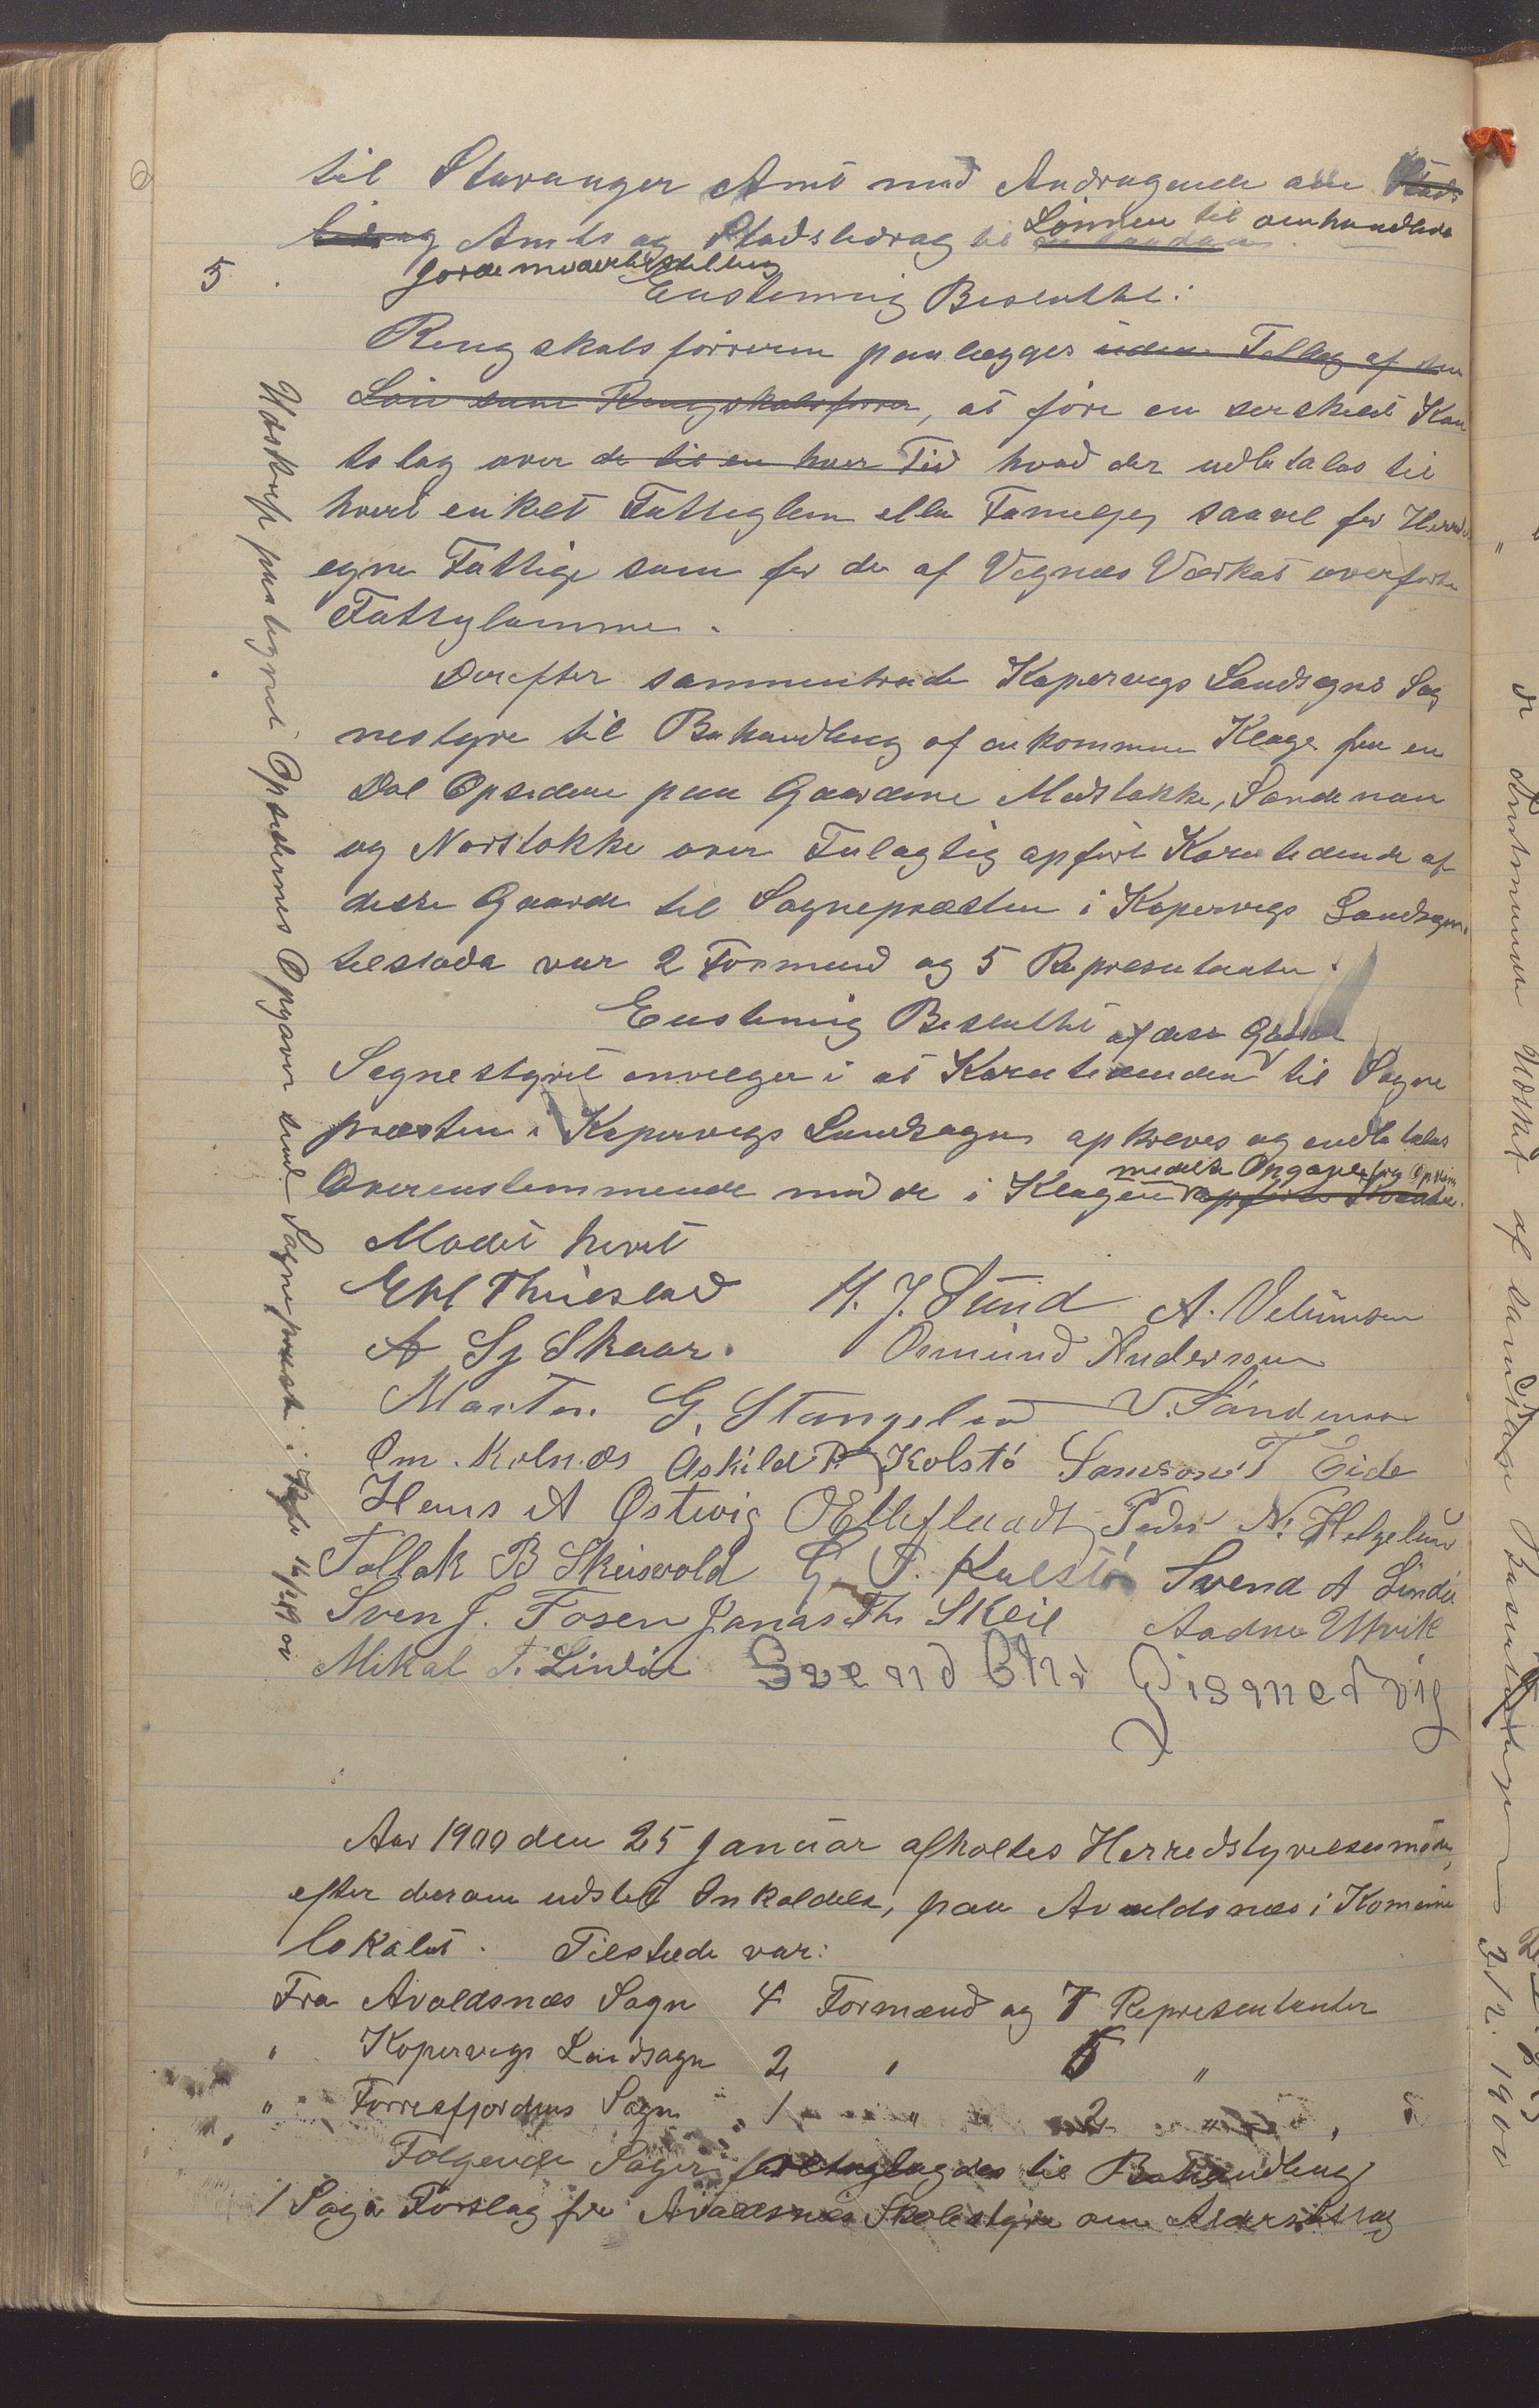 til Stavanger Amt med Andragende om Stads
bidrag Amts og Stadsbidrag til Lønnen til omhandlede
Gordemoderbestelling
5. Enstemig Besluttet:
Rengskabsførreren paalegges uden Tellæg af sin
Løn som Rengskabsfører, at føre en serskelt Kon
tobog over de til en hver Tid hvad der udbetales til
hvert enkelt Fattiglem eller Familje, saavel for Herredets
egne Fattige som for de af Vignæs Værket overførte
Fattiglemmer.
Derefter sammentrade Kopervigs Landsogns Sog
nestyre til Behandling af ankommen Klage fra en
Del Opsedere paa Gaardene Medstokke, Sandenan
og Norstokke over Feilagtig opført Korntiende af
disse Gaarde til Sognepræsten i Kopervigs Landsogn.
tilstede var 2 Formend og 5 Representanter.
Enstemig Besluttet
Sognestyret enveger i at Korntienden af disse Gaarde til Sogne
præsten i Kopervigs Landsogn opkreves og endbetales
Overenstemmende med de i Klagen meddelte Opgaver fra Opsid.
Mødet hevet
Ehl Thuestad H. J. Sund A. Velumsen
A Sj Skaar. Osmund Anderssen
Morten G. Stangeland V. Sandenan
Om. Kolnæs Askild P. Kolstø Samson T Eide
Hans A Østvig O Elleflaadt Peder N. Helgeland
Tollak B Skeisvold G. T. Kolstø Svend A Lindø
Sven J. Fosen Jonas Th Skeie Aadne Utvik
Mikal T. Lindø Svend Chr Gismervig
Aar 1900 den 25 Januar afholtes Herredstyrelsesmøde,
efter derom udsted Inkaldelse, paa Avaldsnæs i Komune
lokalet. Tilstede var:
Fra Avaldsnæs Sogn 4 Formænd og 7 Representanter
" Kopervigs Landsogn 2 " 5 "
" Førresfjordens Sogn " 1 " 2 "
Følgende Sager foretoges til Behandling
1 Sag: Forslag fra Avaldsnæs Skolestyre om
Udskrift paategnet Opsidernes Opgaver sendt Sognepræsten i
de af
3/2. 1900